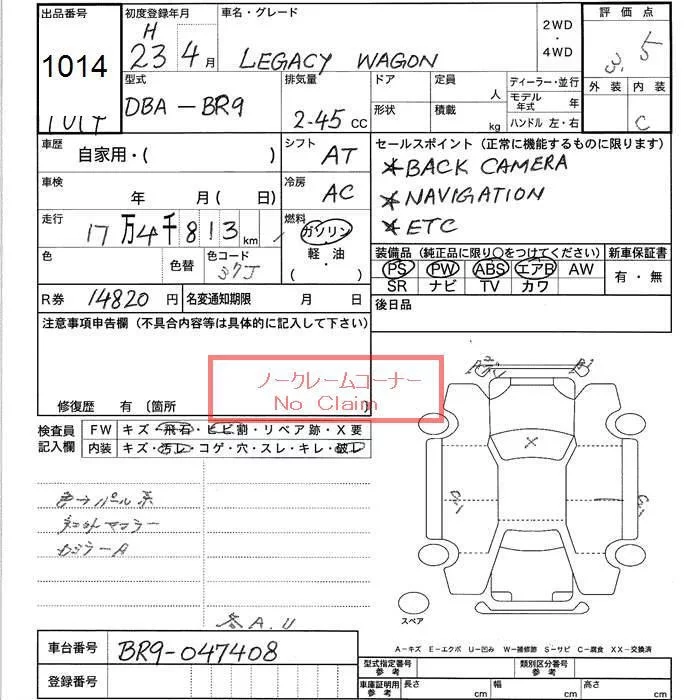 出品番号 初度登録年月 車名・グレード 2WD・4WD 評価点
1014 H 23 4月 LEGACY WAGON 3.5
型式 排気量 ドア 定員 人 ディーラー・並行 外装 内装
DBA-BR9 2.45 cc 形状 積載 kg モデル年式 年 ハンドル 左・右 C
車歴 自家用・( ) シフト AT セールスポイント (正常に機能するものに限ります)
*BACK CAMERA
車検 年 月( 日) 冷房 AC *NAVIGATION
走行 17万4千813km 燃料 ガソリン・軽油・( ) *ETC
色 色替 色コード 37J 装備品 (純正品に限り○をつけてください) 新車保証書
PS PW ABS エアB AW 有・無
SR ナビ TV カワ
R券 14820円 名変通知期限 月 日 後日品
注意事項申告欄 (不具合内容等は具体的に記入して下さい)
ノークレームコーナー
No Claim
修復歴 有 (箇所 )
検査員記入欄 FW キズ・飛石・ヒビ割・リペア跡・X要
内装 キズ・汚レ・コゲ・穴・スレ・キレ・破レ
X
スペア
各A.U
A-キズ E-エクボ U-凹み W-補修跡 S-サビ C-腐食 XX-交換済
車台番号 BR9-047408
型式指定番号 参考 類別区分番号 参考
登録番号
車庫証明用 参考 長さ cm 幅 cm 高さ cm